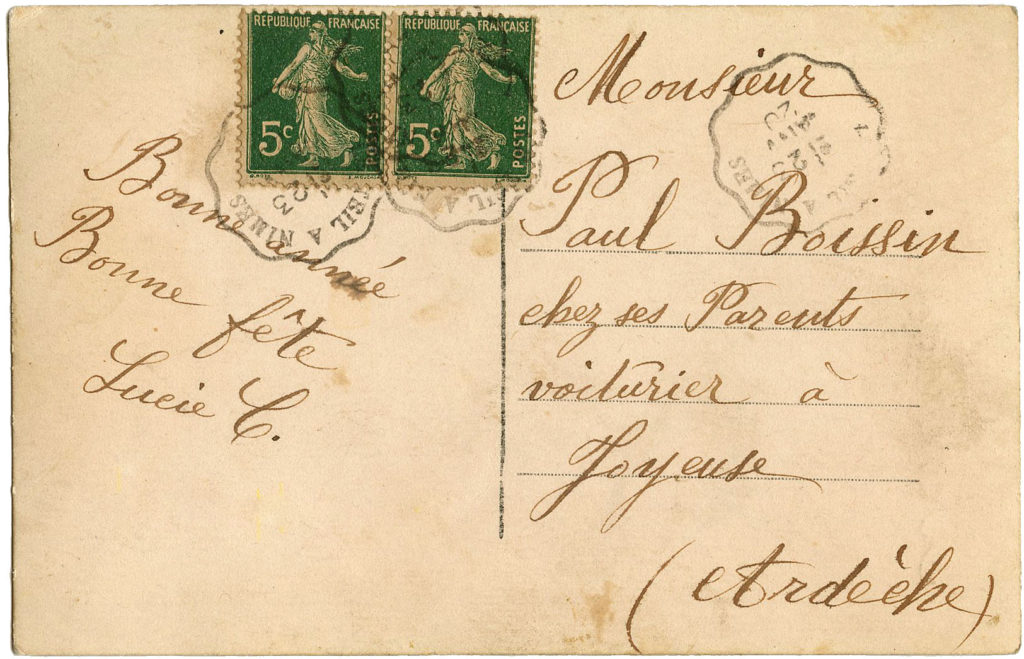 RÉPUBLIQUE FRANÇAISE
5c
POSTES
RÉPUBLIQUE FRANÇAISE
5c
POSTES
A NIMES
Bonne année
Bonne fête
Lucie C.
Monsieur
Paul Boissin
chez ses Parents
voiturier à
Joyeuse
(Ardèche)